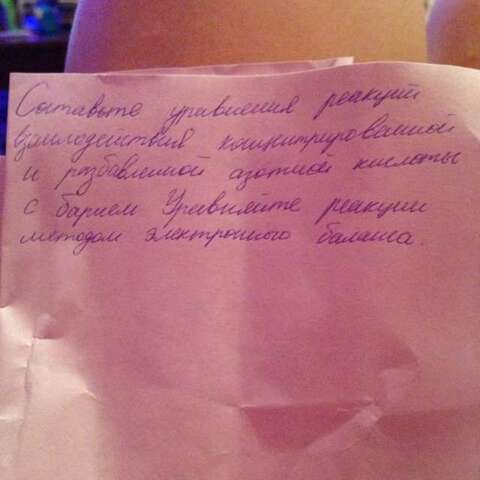 Составьте уравнения реакций
взаимодействия концентрированной
и разбавленной азотной кислоты
с барием Уравняйте реакции
методом электронного баланса.